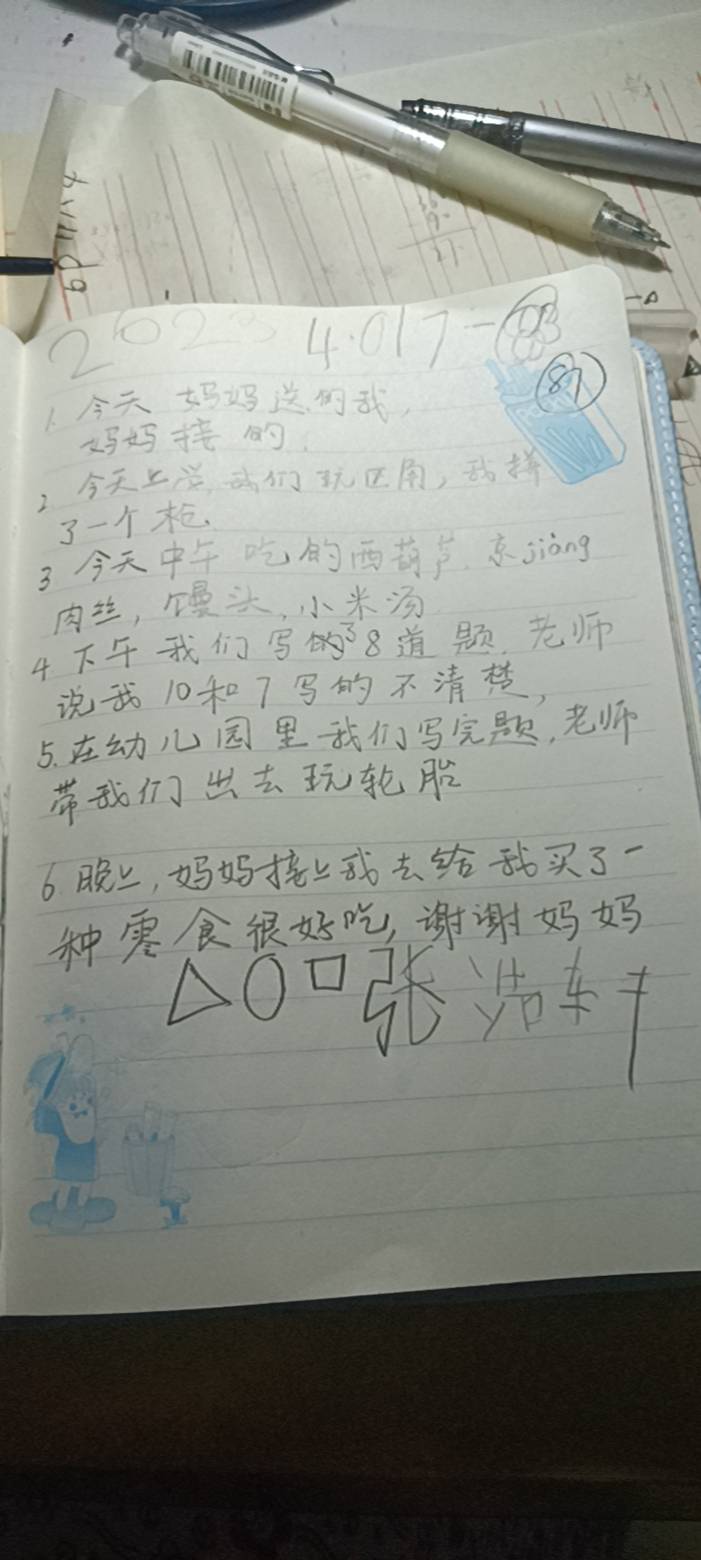 2023 4.017
87
1. 今天 妈妈送的我，
妈妈接的.
2 今天上学，我们玩区角，我拼
了一个枪.
3 今天中午吃的西葫芦.京jiàng
肉丝，馒头，小米汤
4 下午我们写的了8道题. 老师
说我10和7写的不清楚，
5.在幼儿园里我们写完题，老师
带我们出去玩轮胎
6 晚上，妈妈接上我去给我买了一
种零食很好吃，谢谢妈妈
张